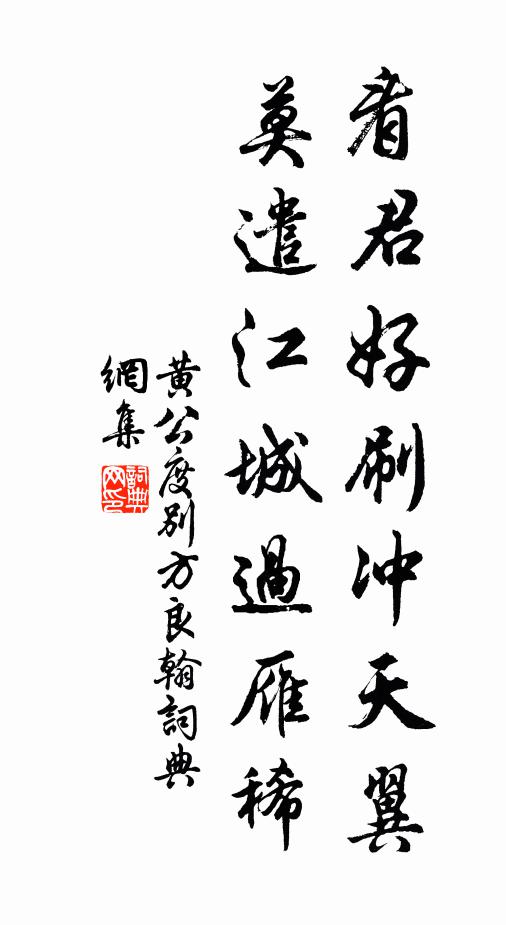 看君好刷冲天翼
莫遣江城過雁稀
黄公度別方良翰詞典
網集
詞典
网印